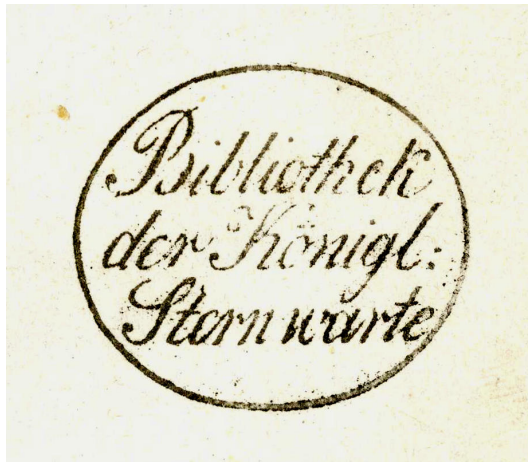 Bibliothek
der Königl:
Sternwarte